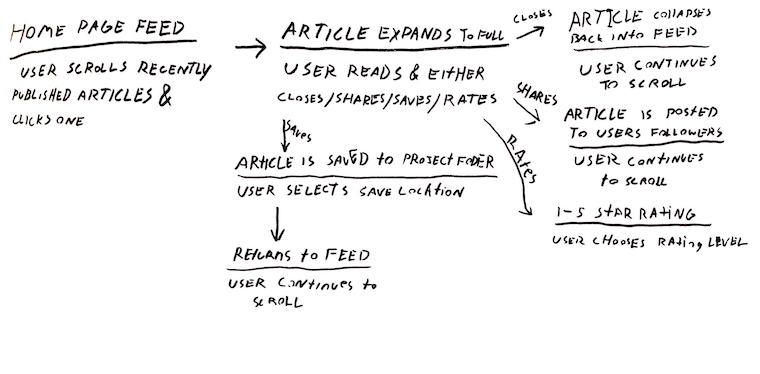 HOME PAGE FEED
USER SCROLLS RECENTLY
PUBLISHED ARTICLES &
CLICKS ONE
ARTICLE EXPANDS To FULL
USER READS & EITHER
CLOSES/SHARES/SAVES/RATES
CLOSES
ARTICLE COLLAPSES
BACK INTO FEED
USER CONTINUES
TO SCROLL
SHARES
ARTICLE IS POSTED
TO USERS FOLLOWERS
USER CONTINUES
to SCROLL
RAtes
1-5 StAR RAtING
USER CHOOSES RAting LEVEL
SAves
ARtICLE IS SAVED to PROJECT FODER
USER SELECTS SAVE LOCAtION
REtURNS to FEED
USER CONtINUES to
SCROLL